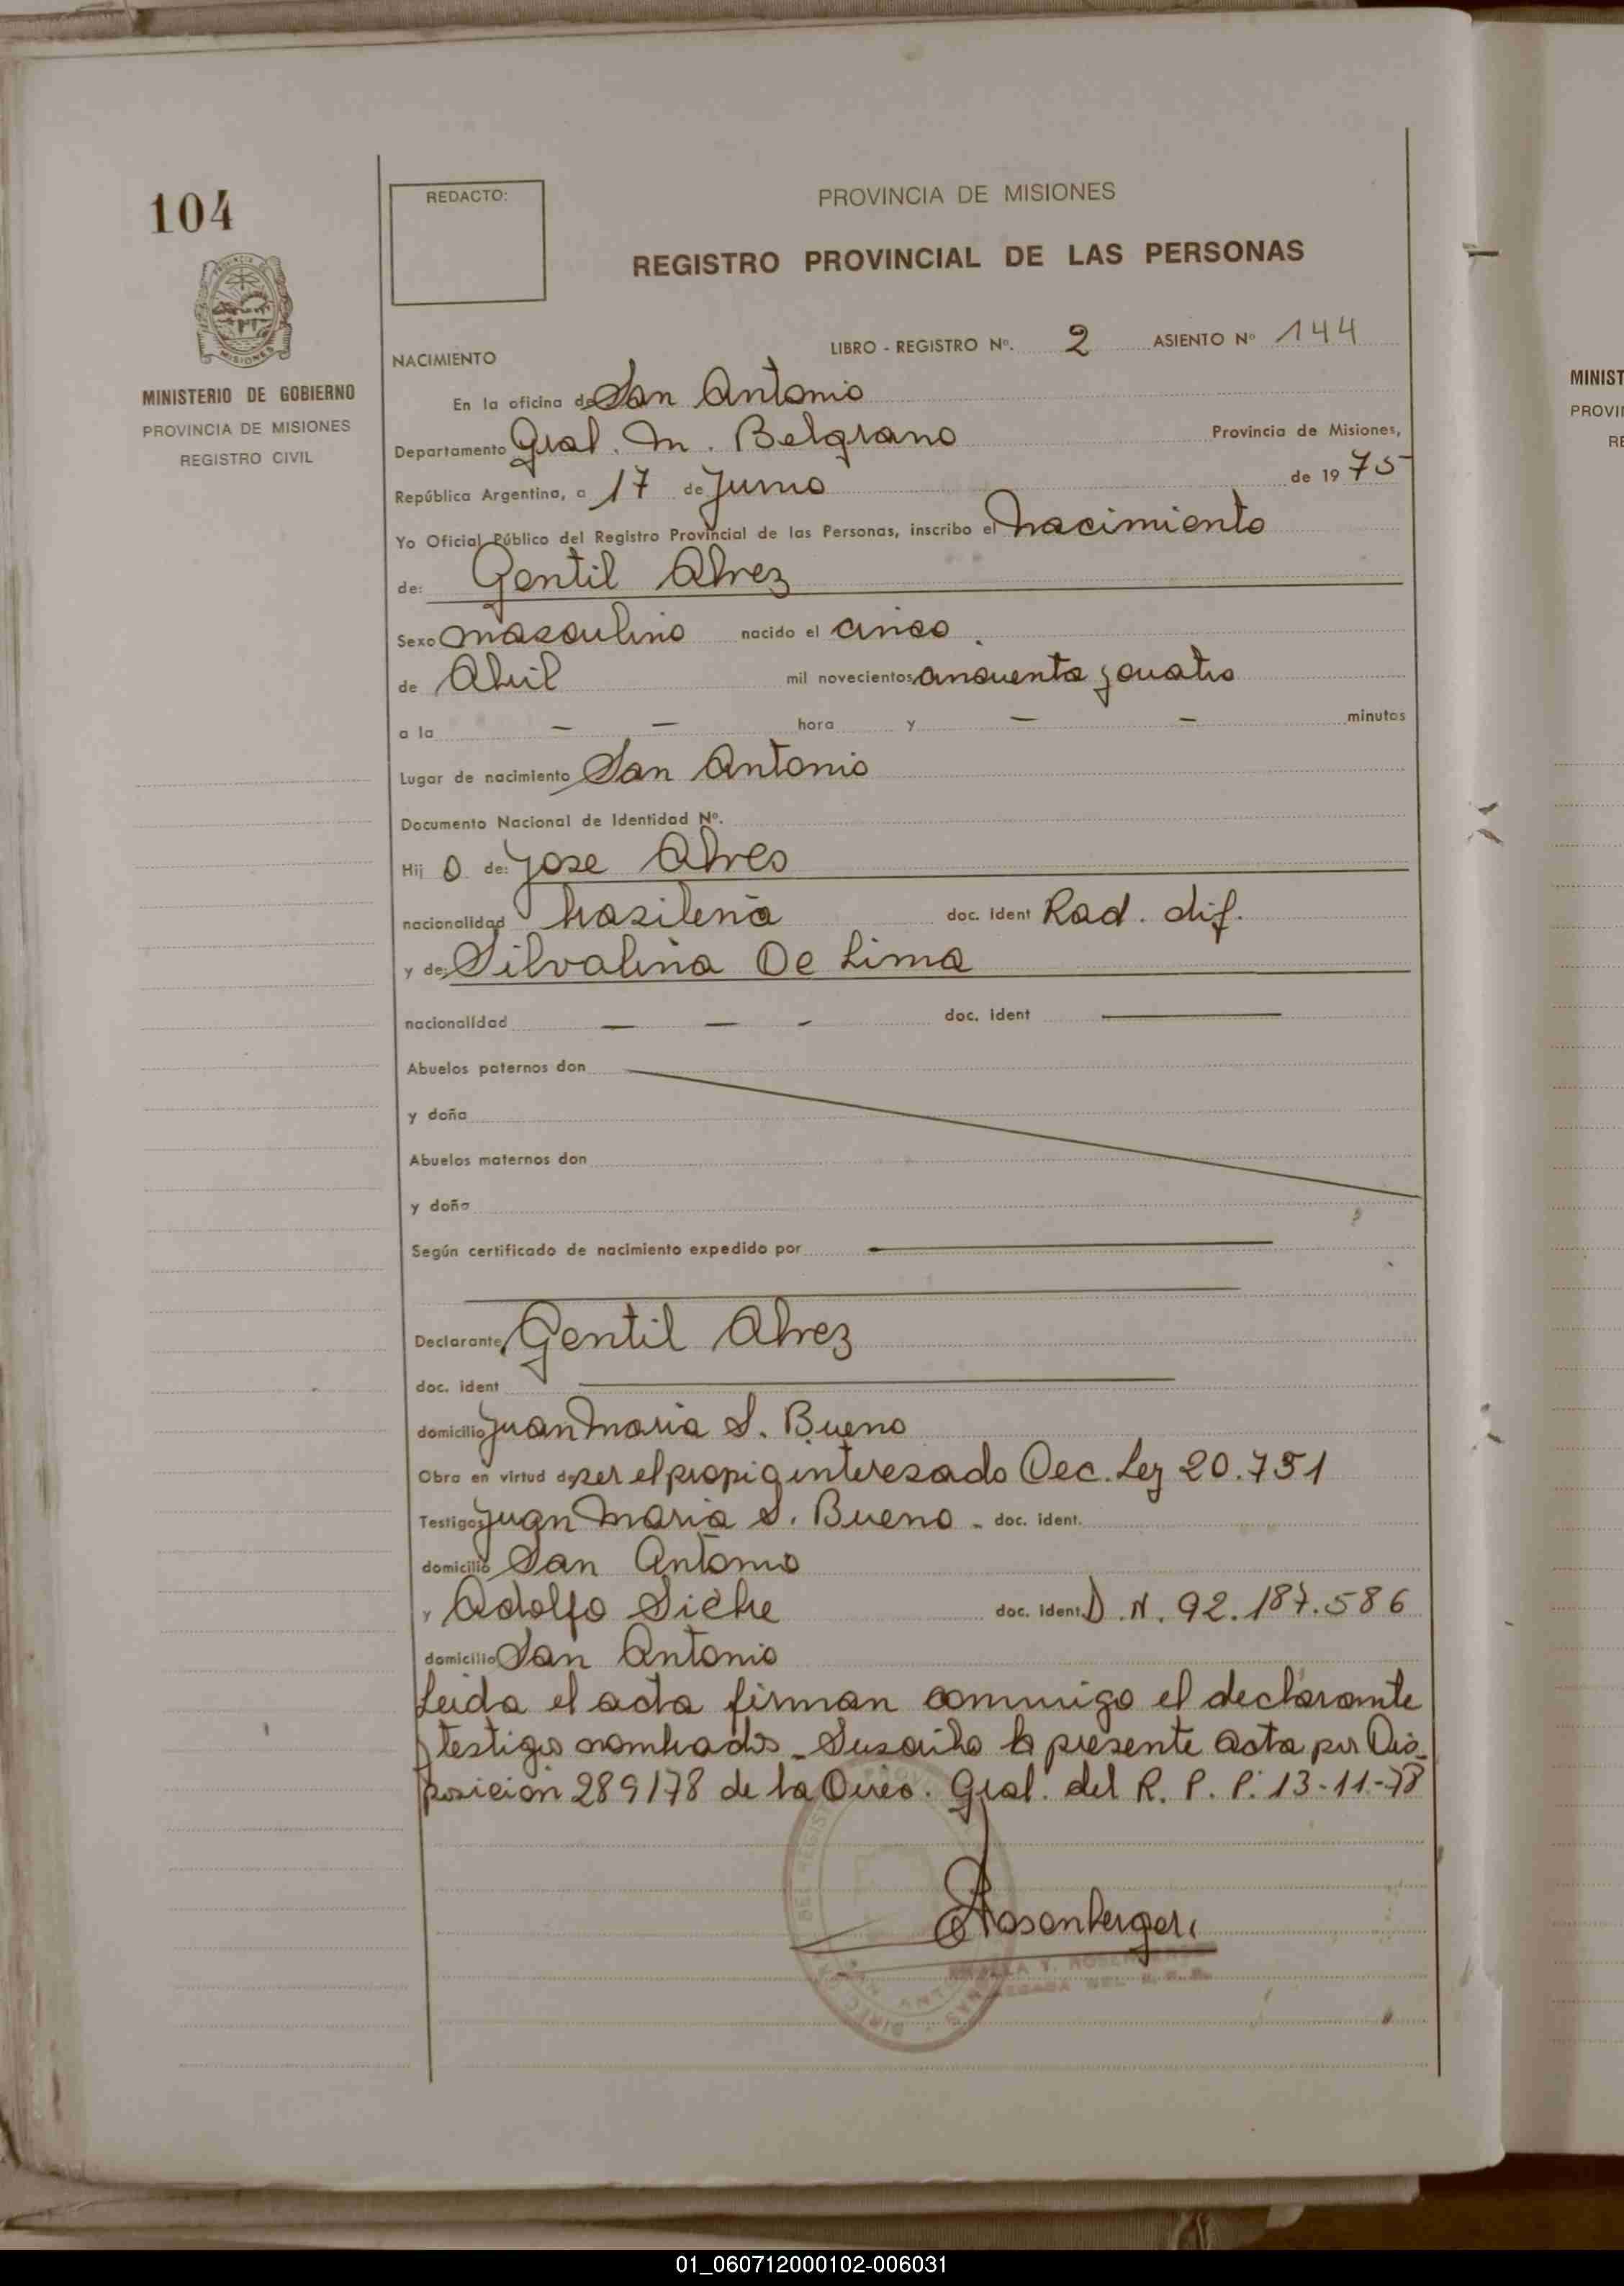 104
MINISTERIO DE GOBIERNO
PROVINCIA DE MISIONES
REGISTRO CIVIL
REDACTO:
PROVINCIA DE MISIONES
REGISTRO PROVINCIAL DE LAS PERSONAS
LIBRO - REGISTRO Nº. 2 ASIENTO Nº 144
NACIMIENTO
En la oficina de San Antonio
Departamento Gral. M. Belgrano Provincia de Misiones,
República Argentina, a 17 de Junio de 1975
Yo Oficial Público del Registro Provincial de las Personas, inscribo el nacimiento
de: Gentil Alvez
Sexo masculino nacido el cinco
de Abril mil novecientos cincuenta y cuatro
a la — — hora y — — minutos
Lugar de nacimiento San Antonio
Documento Nacional de Identidad Nº.
Hij o de: Jose Alves
nacionalidad brasileña doc. Ident Rad. dif.
y de: Silvalina De Lima
nacionalidad — — - doc. ident
Abuelos paternos don
y doña
Abuelos maternos don
y doña
Según certificado de nacimiento expedido por
Declarante Gentil Alvez
doc. ident
domicilio Juan Maria S. Bueno
Obra en virtud de ser el propio interesado Dec. Ley 20.751
Testigos Juan Maria S. Bueno - doc. ident.
domicilio San Antonio
y Adolfo Siche doc. ident. D.N. 92.187.586
domicilio San Antonio
Leida el acta firman conmigo el declarante
y testigos nombrados - Suscribo la presente acta por Dis-
posición 289/78 de la Direc. Gral. del R. P. P. 13-11-78
Rosenberger
MINIST
PROVIN
RE
01_060712000102-006031